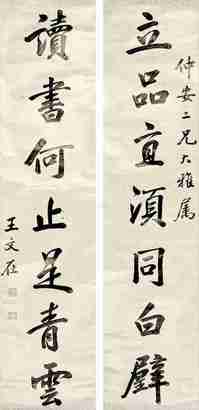 仲安二兄大雅属
立品直須同白璧
讀書何止足青雲
王文在